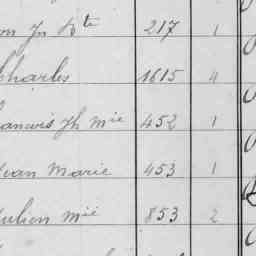 on Jn Bte 217 1
Charles 1615 4
rancois Jh Mie 452 1
Jean Marie 453 1
Julien Mie 853 2